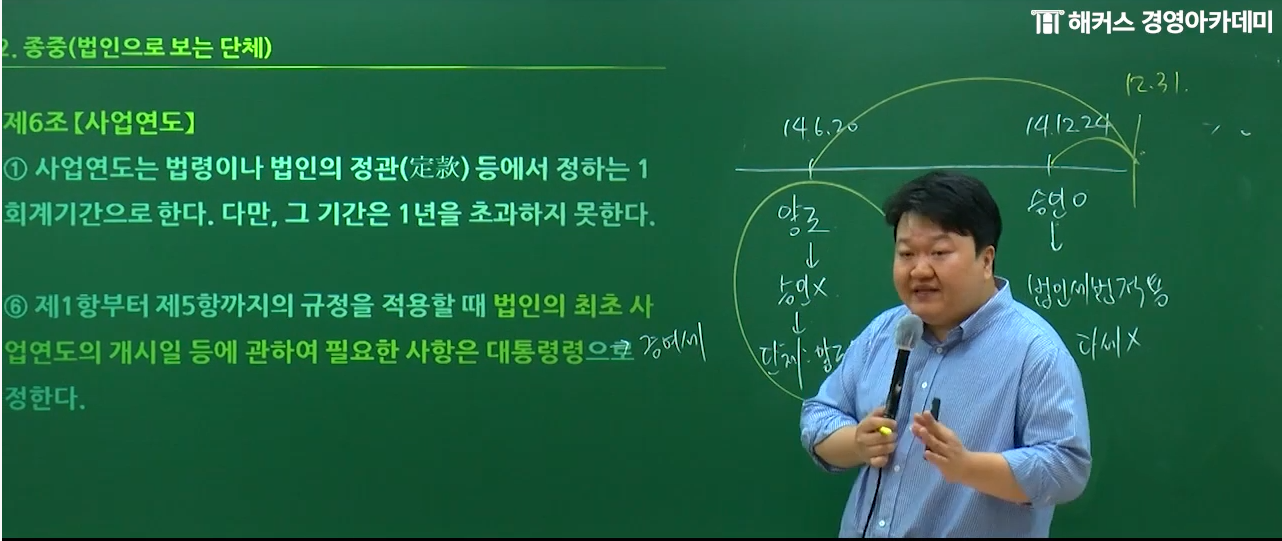 해커스 경영아카데미
2. 종중(법인으로 보는 단체)
제6조【사업연도】
① 사업연도는 법령이나 법인의 정관(定款) 등에서 정하는 1
회계기간으로 한다. 다만, 그 기간은 1년을 초과하지 못한다.
⑥ 제1항부터 제5항까지의 규정을 적용할 때 법인의 최초 사
업연도의 개시일 등에 관하여 필요한 사항은 대통령령으로
정한다.
12.31.
14.6.20
14.12.24
양도
↓
승인X
↓
단체:
승인O
↓
법인세법 적용
과세X